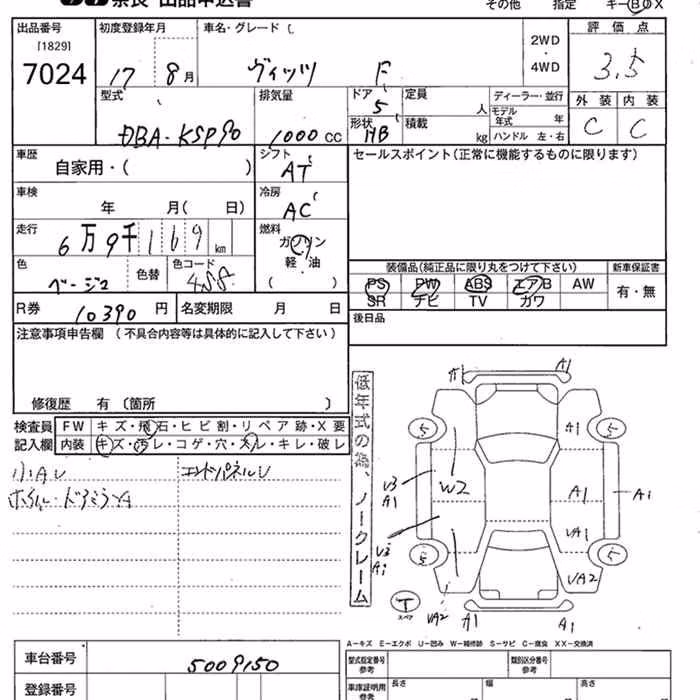 奈良 出品申込書 その他 指定 キーBOX
出品番号 初度登録年月 車名・グレード 評価点
[1829]
7024 17 8月 ヴィッツ F 2WD・4WD 3.5
型式 排気量 ドア 定員 ディーラー・並行 外装 内装
5 人 モデル年式 年
DBA-KSP90 1000 CC 形状 HB 積載 kg ハンドル 左・右 C C
車歴 シフト セールスポイント(正常に機能するものに限ります)
自家用・( ) AT
車検 冷房
年 月( 日) AC
走行 燃料
6万9千169km ガソリン
色 色替 色コード 軽・油
ベージュ ( )
装備品(純正品に限り丸をつけて下さい) 新車保証書
PS PW ABS エアB AW 有・無
SR ナビ TV カワ
R券 10390円 名変期限 月 日
後日品
注意事項申告欄 (不具合内容等は具体的に記入して下さい)
修復歴 有 〔箇所 〕
検査員 FW キズ・飛石・ヒビ割・リペア跡・X要
記入欄 内装 キズ・汚レ・コゲ・穴・スレ・キレ・破レ
小AU エンドパネルU
ホイル・ドアミラーA
低年式の為、ノークレーム
A1 A1
5 A1 5
U3 A1 W2 A1 A1
U3 A1 UA1
5 5
UA2 UA2
T スペア A1 A1
A-キズ E-エクボ U-凹み W-補修跡 S-サビ C-腐食 XX-交換済
車台番号 5009150 型式指定番号 参考 類別区分番号 参考
登録番号 車庫証明用 参考 長さ 幅 高さ